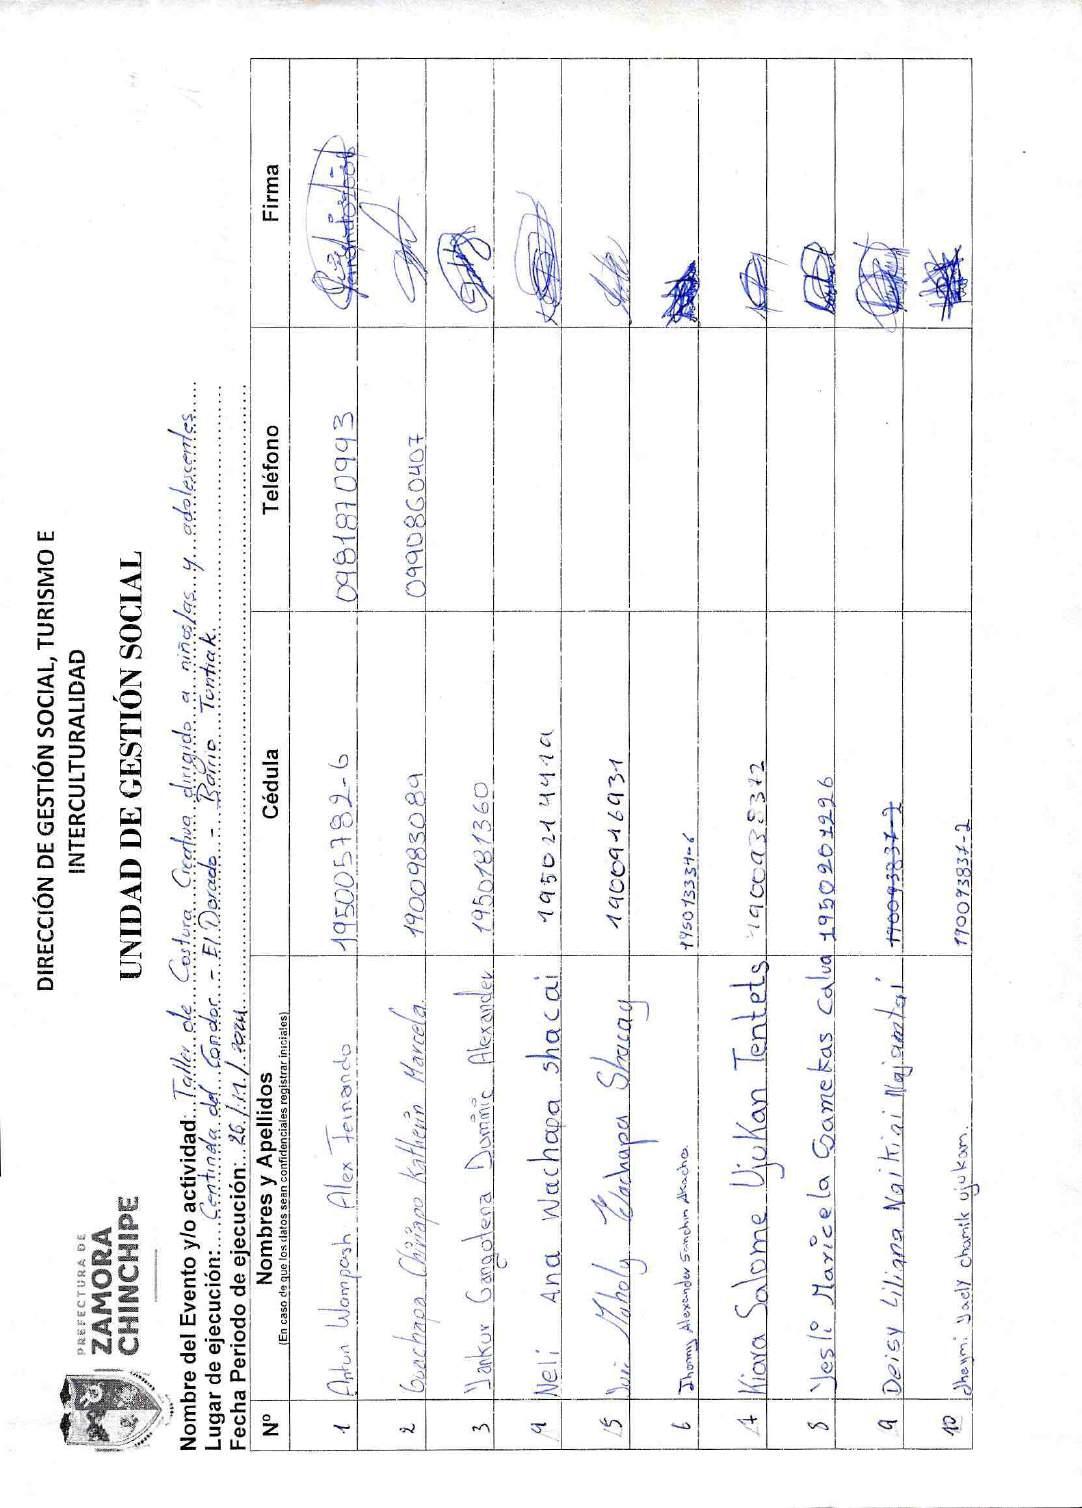 DIRECCIÓN DE GESTIÓN SOCIAL, TURISMO E
INTERCULTURALIDAD
PREFECTURA DE
ZAMORA
CHINCHIPE
UNIDAD DE GESTIÓN SOCIAL
Nombre del Evento y/o actividad: Taller de Costura Creativa dirigido a niños/as y adolescentes
Lugar de ejecución: Centinela del Condor - El Dorado - Barrio Tuntiak.
Fecha Periodo de ejecución: 26/11/2024
Nº Nombres y Apellidos Cédula Teléfono Firma
(En caso de que los datos sean confidenciales registrar iniciales)
1 Antun Wampash Alex Fernando 195005782-6 0981870993
2 Guachapa Chiriapo Katherin Marcela 1900983089 0990860407
3 Yankur Gangotena Dominic Alexander 1950181360
4 Neli Ana Wachapa Shacai
5 Maholy Wachapa Shacay 1900916931
6 Jhonny Alexander Sanchin Akacho 195013334-6
7 Kiara Salome Ujukan Tentets
8 Yesli Maricela Samekas Calva 1950201226
9 Deisy Liliana Naikiai Najamtai 190093837-2
10 dheymi yaely chamik ujukam. 190093837-2